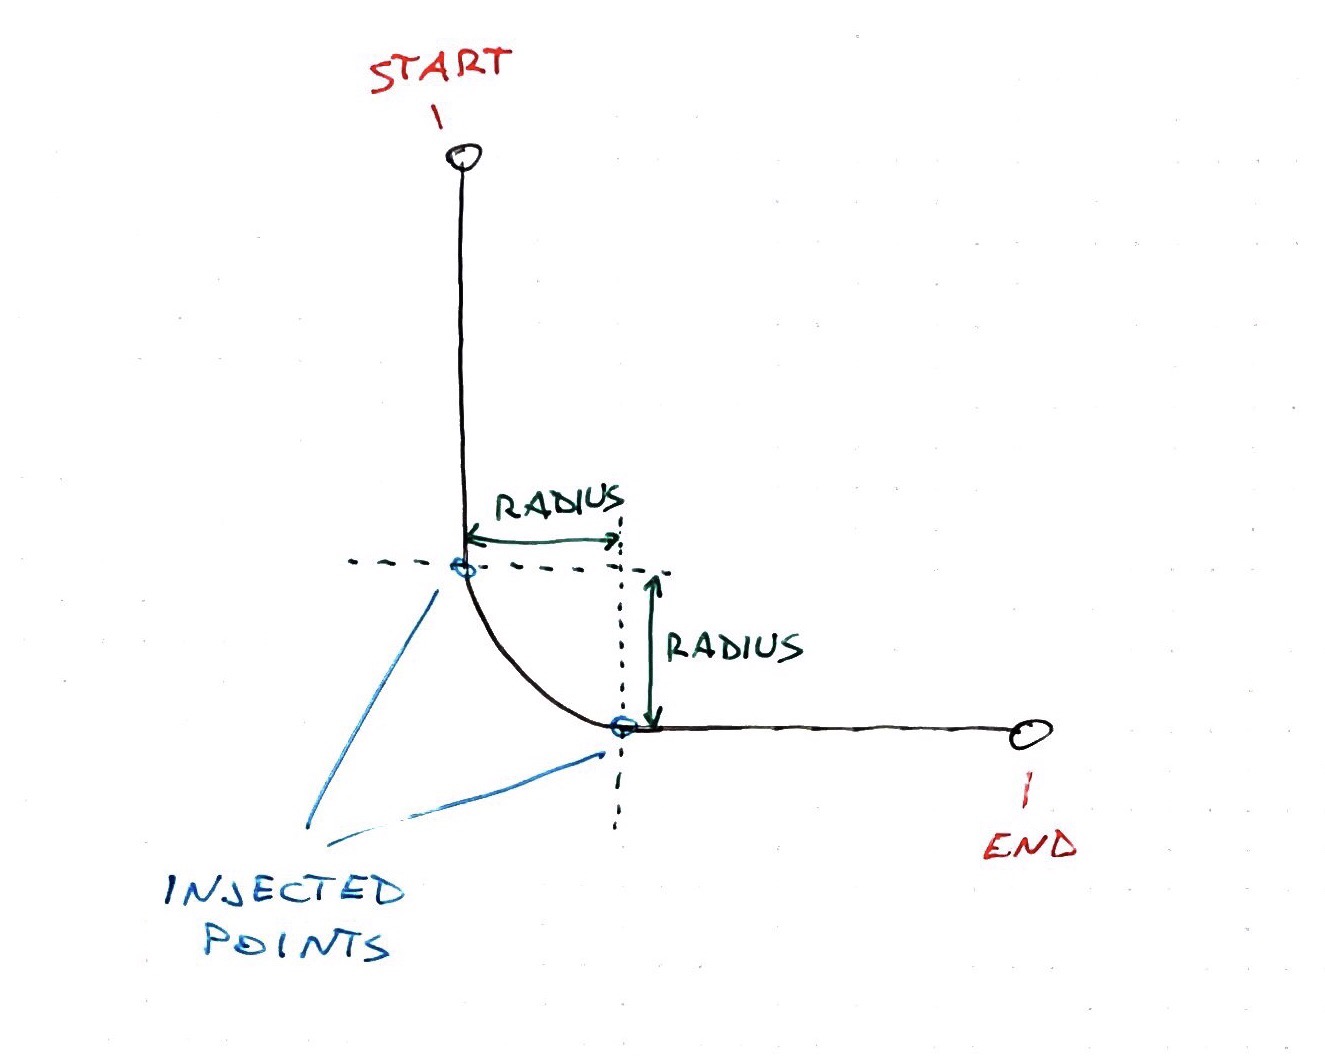 START
RADIUS
RADIUS
END
INJECTED
POINTS